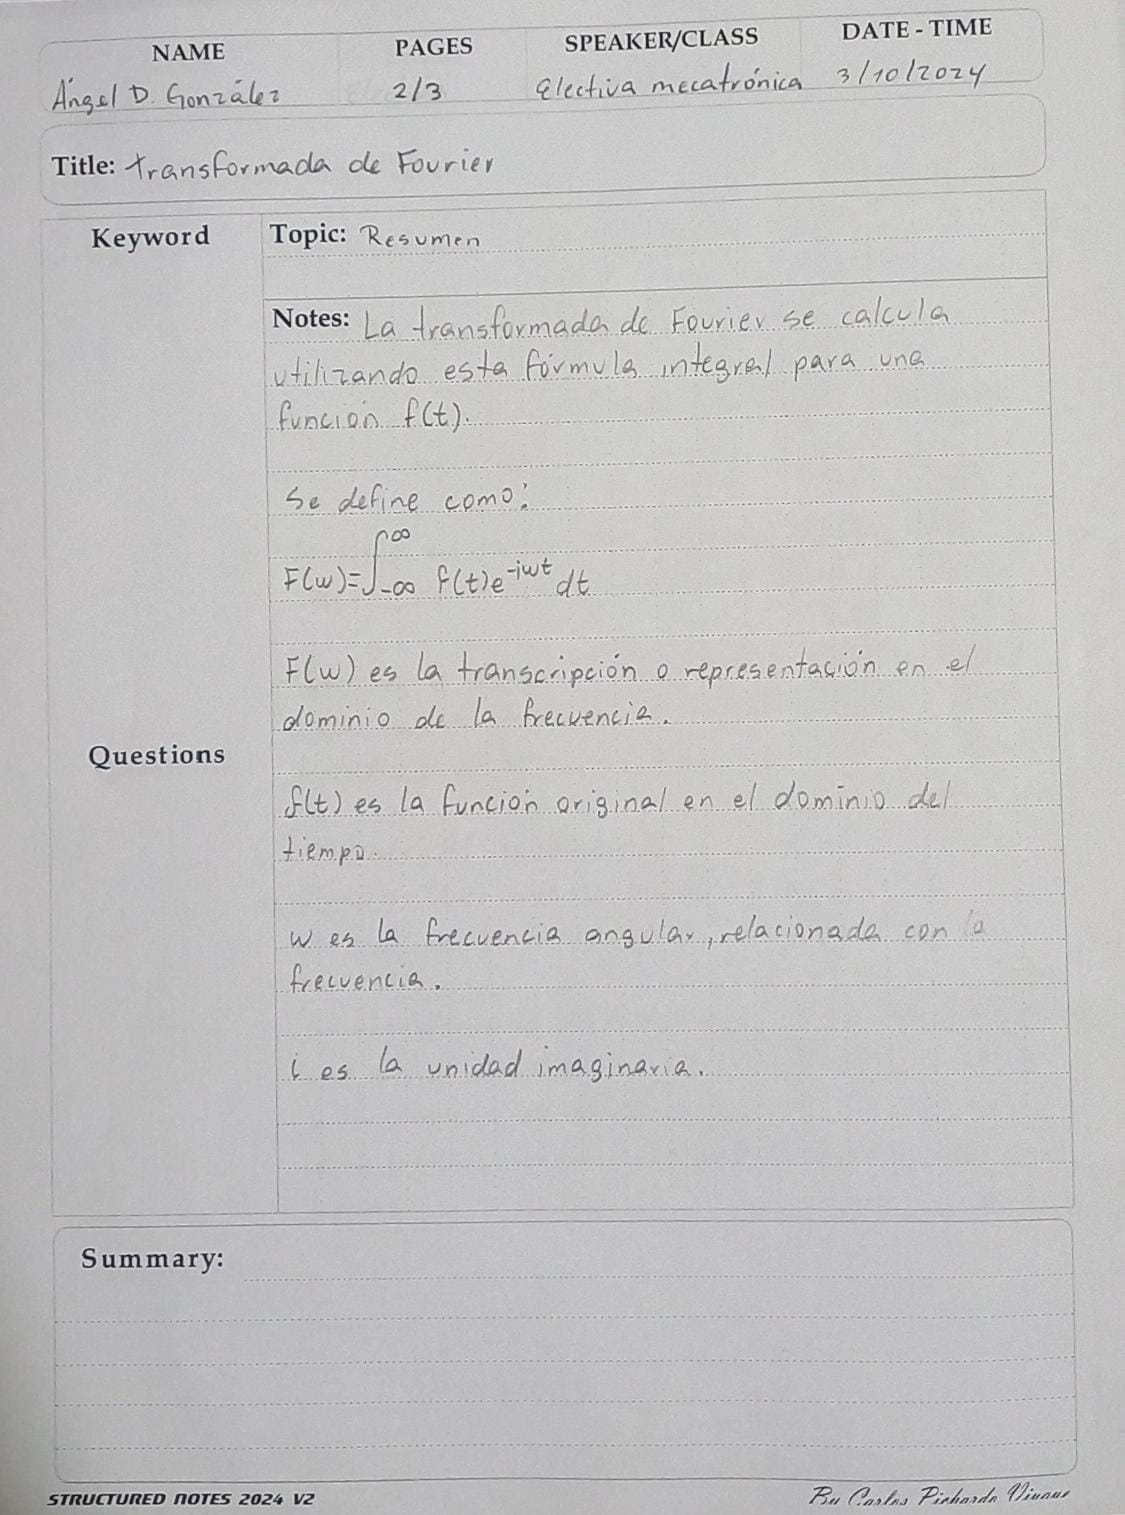 NAME PAGES SPEAKER/CLASS DATE - TIME
Ángel D. González 2/3 Electiva mecatrónica 3/10/2024
Title: transformada de Fourier
Keyword
Topic: Resumen
Notes: La transformada de Fourier se calcula
utilizando esta fórmula integral para una
función f(t).
Se define como:
F(w)=∫_{-∞}^{∞} f(t)e^{-iwt} dt
F(w) es la transcripción o representación en el
dominio de la frecuencia.
Questions
f(t) es la función original en el dominio del
tiempo.
w es la frecuencia angular, relacionada con la
frecuencia.
i es la unidad imaginaria.
Summary:
STRUCTURED NOTES 2024 V2
By Carlos Pichardo Viuque